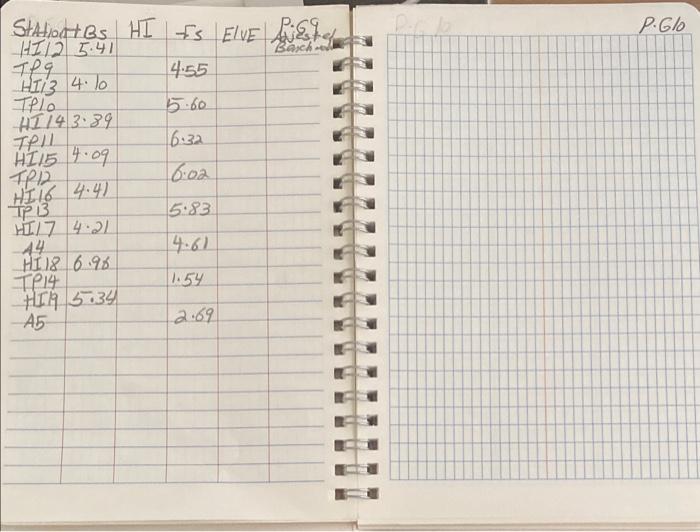 Station +Bs HI -Fs ElvE P.G9
HI12 5.41
TP9 4.55
HI13 4.10
TP10 5.60
HI14 3.89
TP11 6.32
HI15 4.09
TP12 6.02
HI16 4.41
TP13 5.83
HI17 4.21
A4 4.61
HI18 6.98
TP14 1.54
HI19 5.34
A5 2.69
P.G10